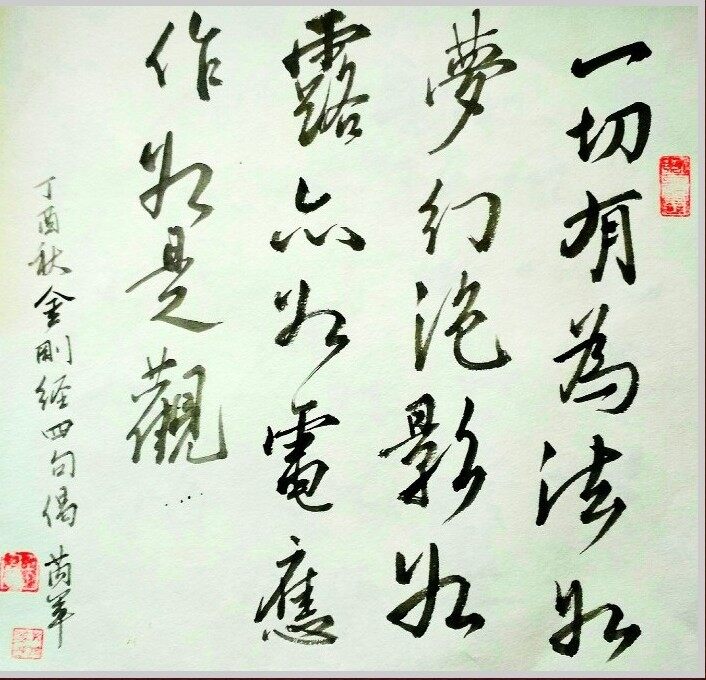 一切有為法如
夢幻泡影如
露亦如電應
作如是觀
丁酉秋金剛经四句偈